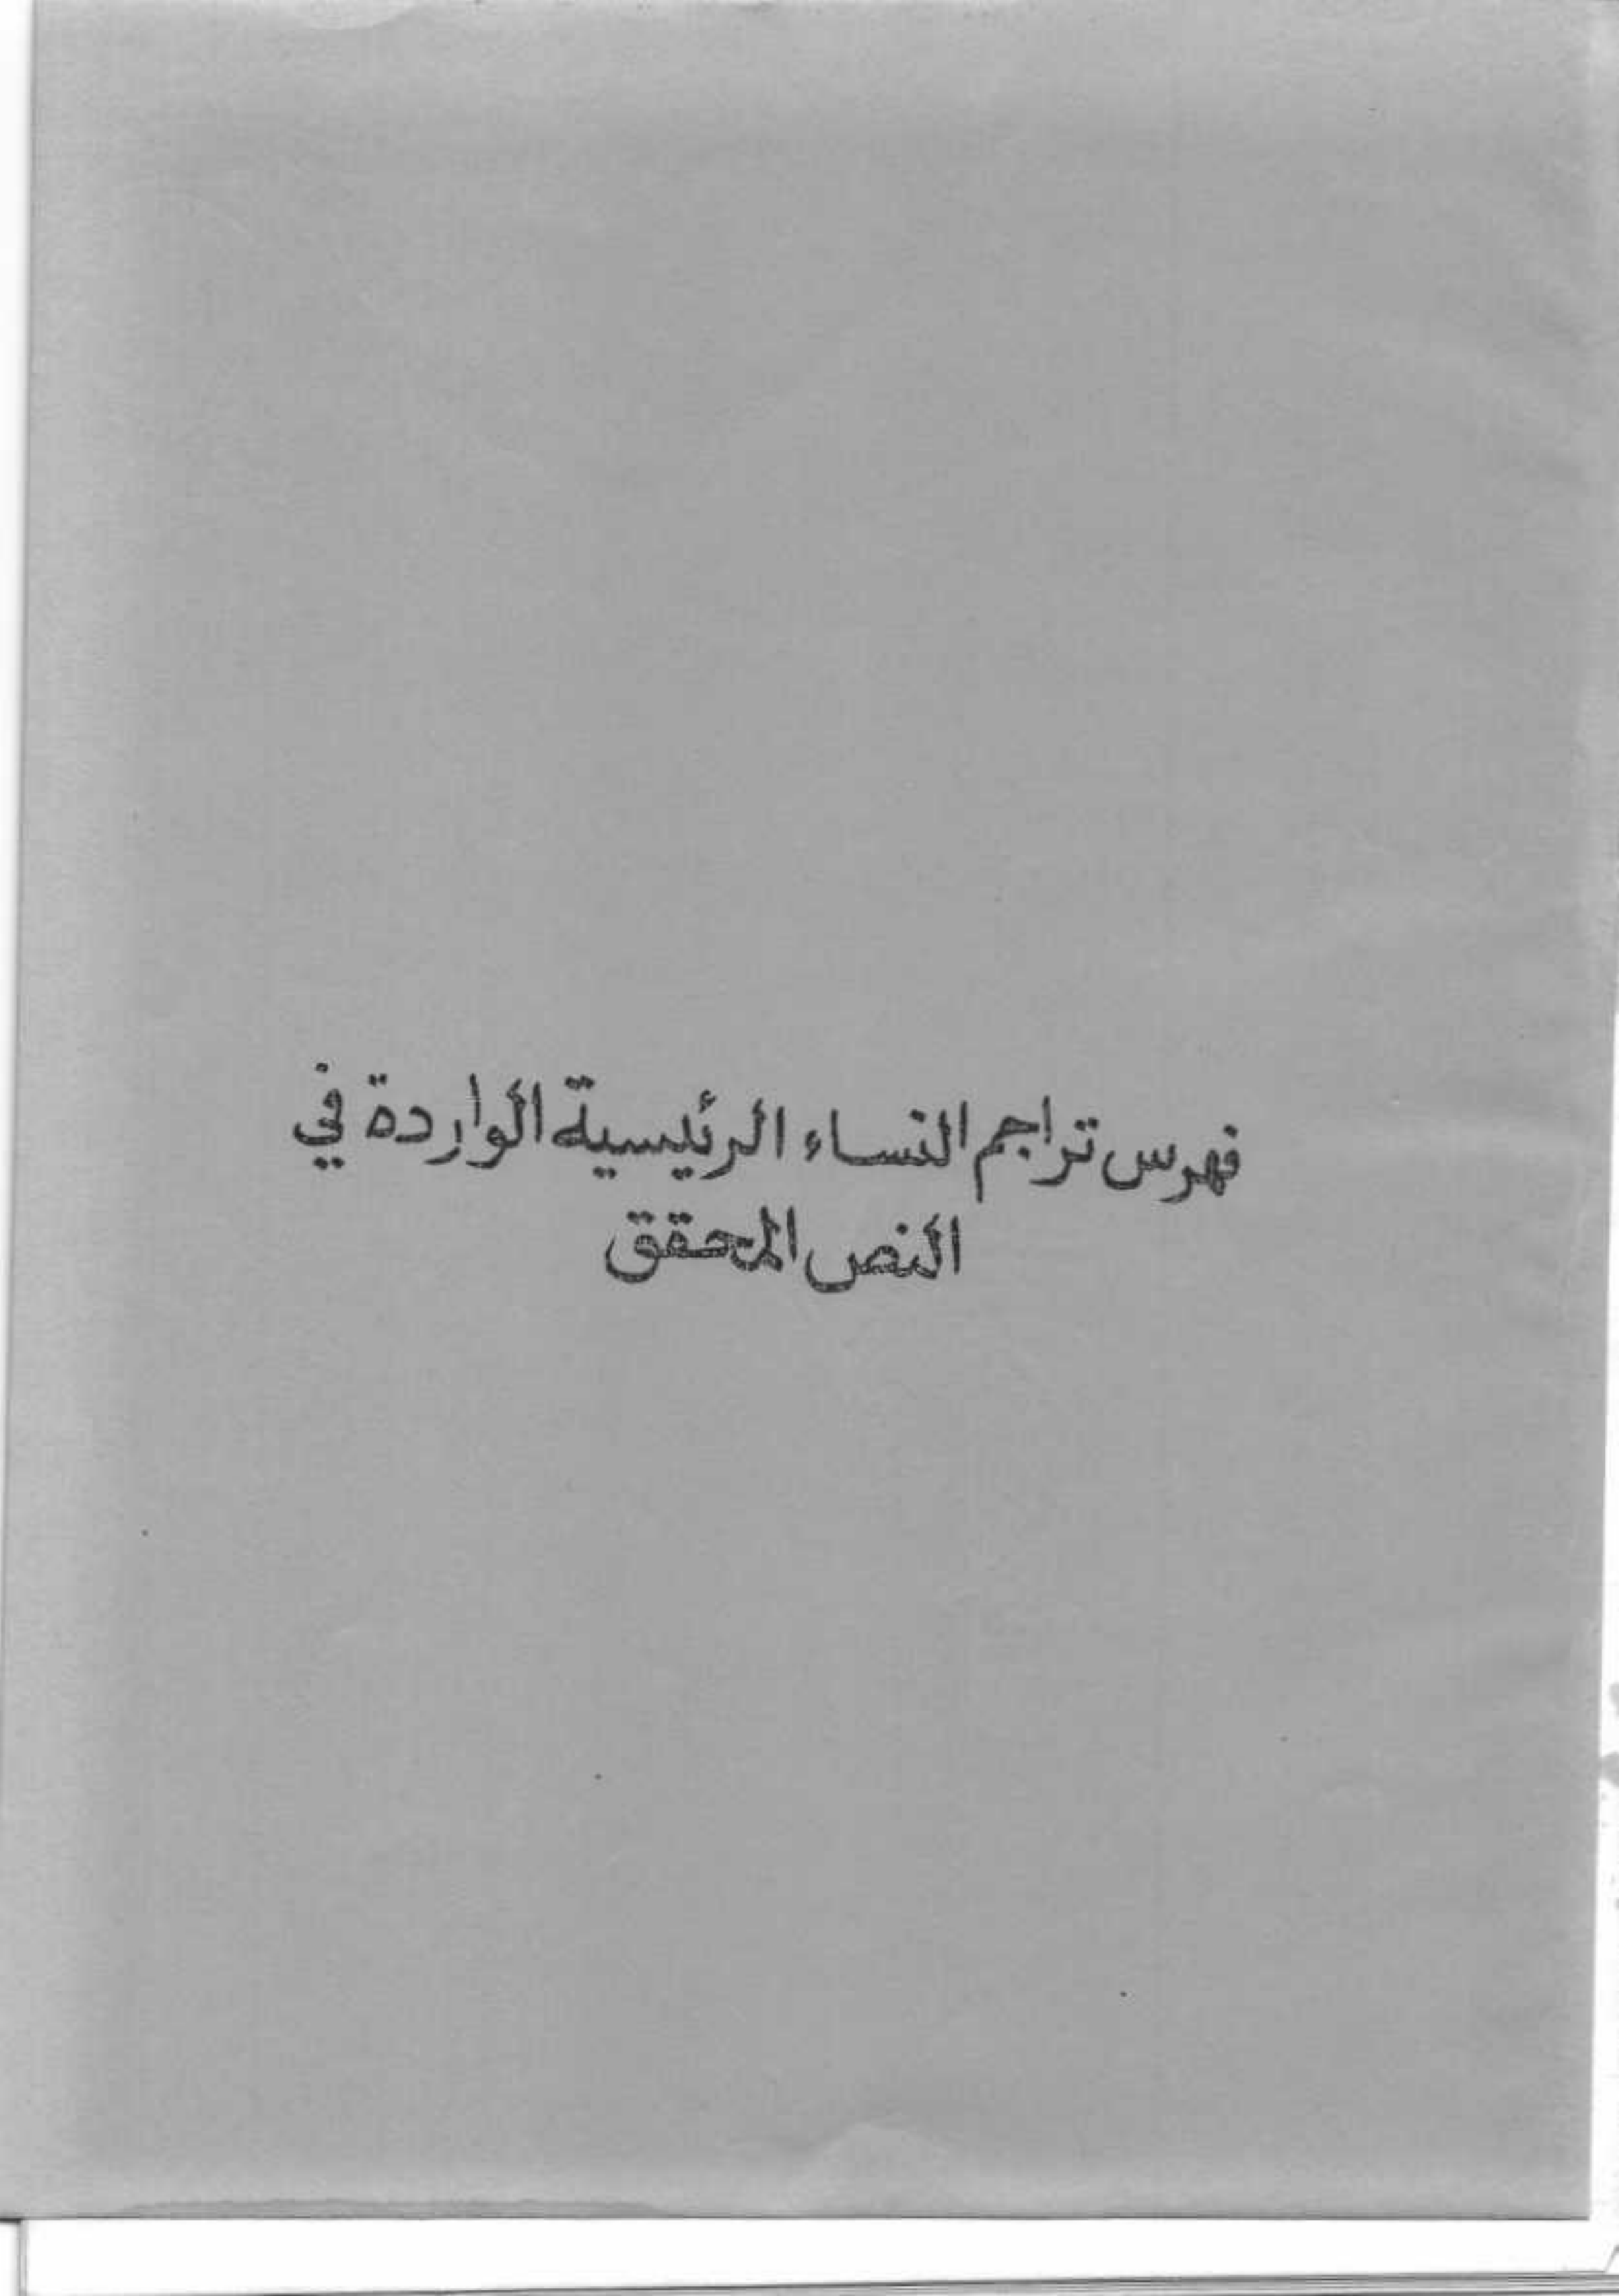 فهرس تراجم النساء الرئيسية الواردة في
النص المحقق